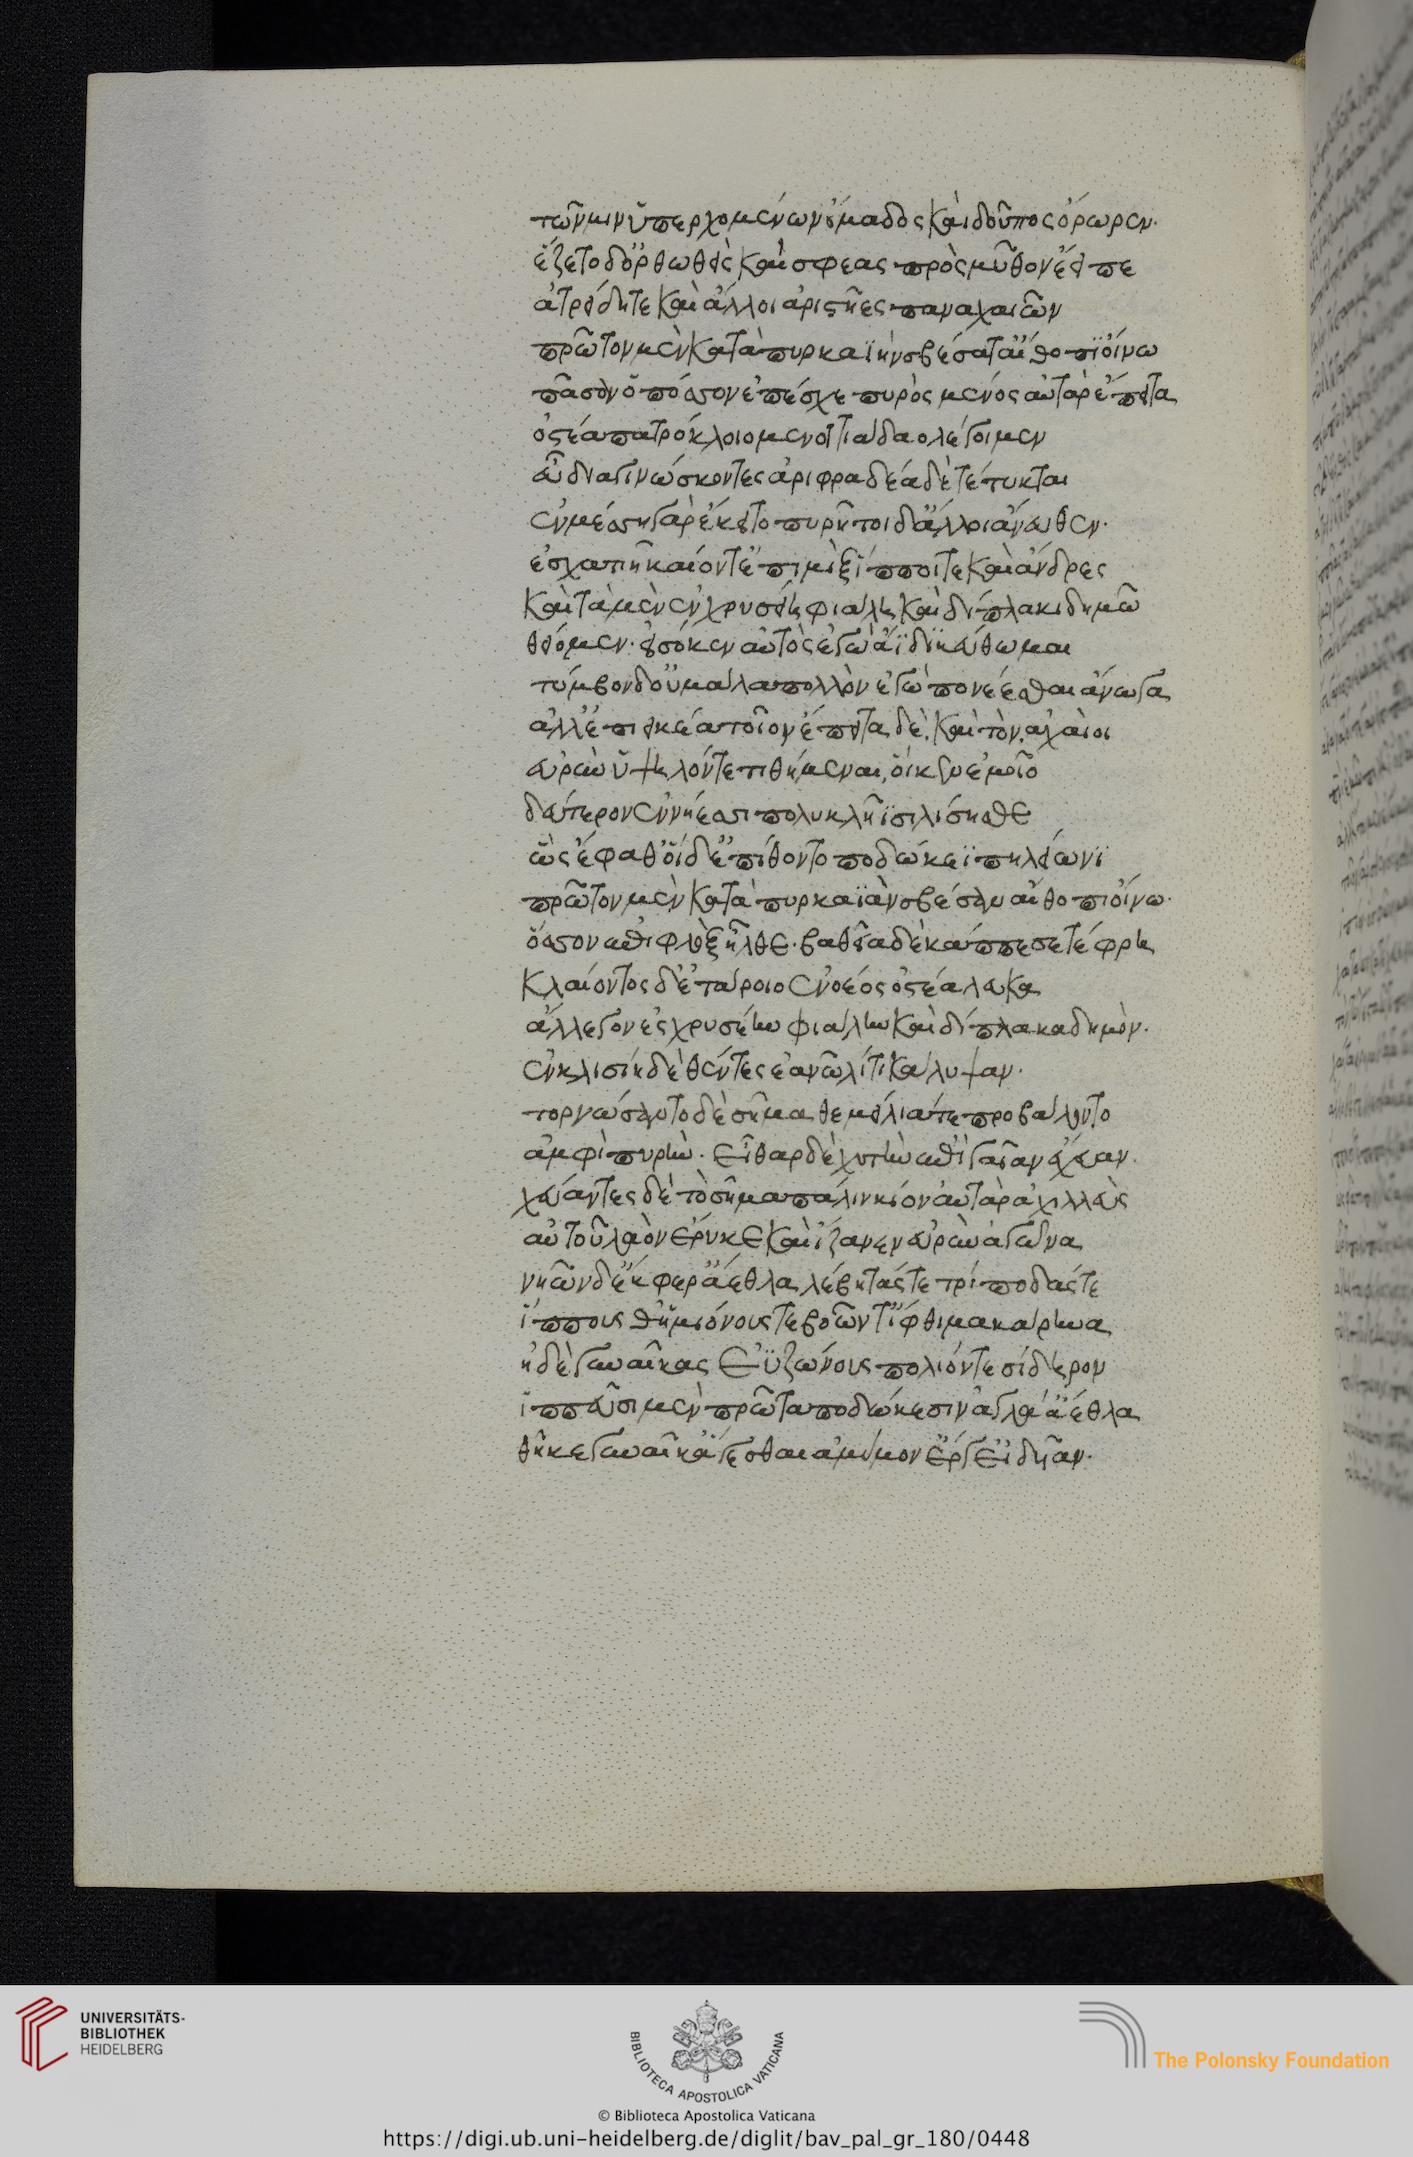 τῶν μιν ὕπερχομένων ὅμαδος καὶ δοῦπος ὄρωρεν·
ἕζετο δ' ὀρθωθεὶς καί σφεας πρὸς μῦθον ἔειπε
ἀτρείδη τε καὶ ἄλλοι ἀριστῆες παναχαιῶν
πρῶτον μὲν κατὰ πυρκαϊὴν σβέσατ' αἴθοπι οἴνω
πᾶσαν ὁπόσσον ἐπέσχε πυρὸς μένος αὐτὰρ ἔπειτα
ὀστέα πατρόκλοιο μενοιτιάδαο λέγοιμεν
εὖ διαγινώσκοντες ἀριφραδέα δὲ τέτυκται
ἐν μέσση γὰρ ἔκειτο πυρῆ τοὶ δ' ἄλλοι ἄνευθεν·
ἐσχατιῆ καίοντ' ἐπιμὶξ ἵπποι τε καὶ ἄνδρες
καὶ τὰ μὲν ἐν χρυσέη φιάλη καὶ δίπλακι δημῶ
θείομεν· εἰσόκεν αὐτὸς ἐγὼ ἄϊδι κεύθωμαι
τύμβον δ' οὐ μάλα πολλὸν ἐγὼ πονέεσθαι ἄνωγα
ἀλλ' ἐπιεικέα τοῖον ἔπειτα δὲ καὶ τὸν ἀχαιοι
εὐρὺν ὑψηλόν τε τιθήμεναι, οἵ κεν ἐμοῖο
δεύτεροι ἐν νήεσσι πολυκλήϊσι λίπησθε
ὣς ἔφαθ' οἱ δ' ἐπίθοντο ποδώκεϊ πηλείωνι
πρῶτον μὲν κατὰ πυρκαϊὰν σβέσαν αἴθοπι οἴνω·
ὅσσον ἐπὶ φλὸξ ἦλθε· βαθεῖα δὲ κάππεσε τέφρη
κλαίοντος δ' ἑτάροιο ἐνηέος ὀστέα λευκα
ἄλλεγον ἐς χρυσέην φιάλην καὶ δίπλακα δημὸν·
ἐν κλισίη δὲ θέντες ἑανῶ λιτὶ κάλυψαν·
τορνώσαντο δὲ σῆμα θεμείλιά τε προβάλοντο
ἀμφὶ πυρὴν· εἶθαρ δὲ χυτὴν ἐπὶ γαῖαν ἔχευαν.
χεύαντες δὲ τὸ σῆμα πάλιν κίον αὐτὰρ ἀχιλλεὺς
αὐτοῦ λαὸν ἔρυκε καὶ ἵζανεν εὐρὺν ἀγῶνα
νηῶν δ' ἔκφερ' ἄεθλα λέβητάς τε τρίποδάς τε
ἵππους θ' ἡμιόνους τε βοῶν τ' ἴφθιμα κάρηνα
ἠδὲ γυναῖκας ἐϋζώνους πολιόν τε σίδηρον
ἱππεῦσι μὲν πρῶτα ποδώκεσιν ἀγλά' ἄεθλα
θῆκε γυναῖκ' ἄγεσθαι ἀμύμον' ἔργ' εἰδυῖαν·
UNIVERSITÄTS-
BIBLIOTHEK
HEIDELBERG
BIBLIOTECA APOSTOLICA VATICANA
The Polonsky Foundation
© Biblioteca Apostolica Vaticana
https://digi.ub.uni-heidelberg.de/diglit/bav_pal_gr_180/0448